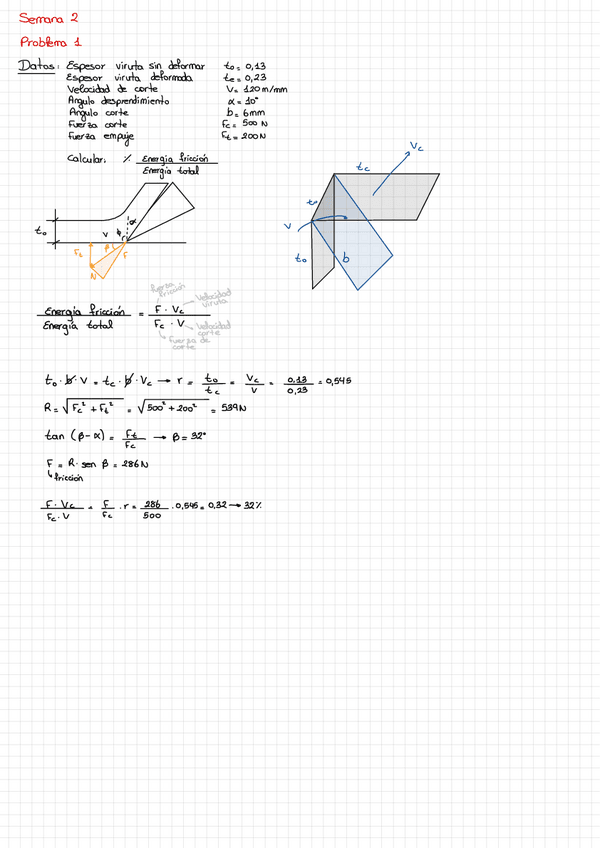 Semana 2
Problema 1
Datos: Espesor viruta sin deformar t₀ = 0,13
Espesor viruta deformada tc = 0,23
Velocidad de corte V = 120 m/min
Angulo desprendimiento α = 10°
Angulo corte b = 6mm
Fuerza corte Fc = 500 N
Fuerza empuje Ft = 200N
Calcular: % Energia fricción / Energia total
t₀
V
α
Fc
β
F
N
Vc
tc
t₀
V
t₀
b
fuerza fricción
Velocidad viruta
Energía fricción / Energía total = F · Vc / Fc · V
Velocidad corte
fuerza de corte
t₀ · b · V = tc · b · Vc → r = t₀/tc = Vc/V = 0,13/0,23 = 0,545
R = √(Fc² + Ft²) = √(500² + 200²) = 539N
tan (β-α) = Ft/Fc → β = 32°
F = R · sen β = 286N
↳ fricción
F · Vc / Fc · V = F/Fc · r = 286/500 · 0,545 = 0,32 → 32%